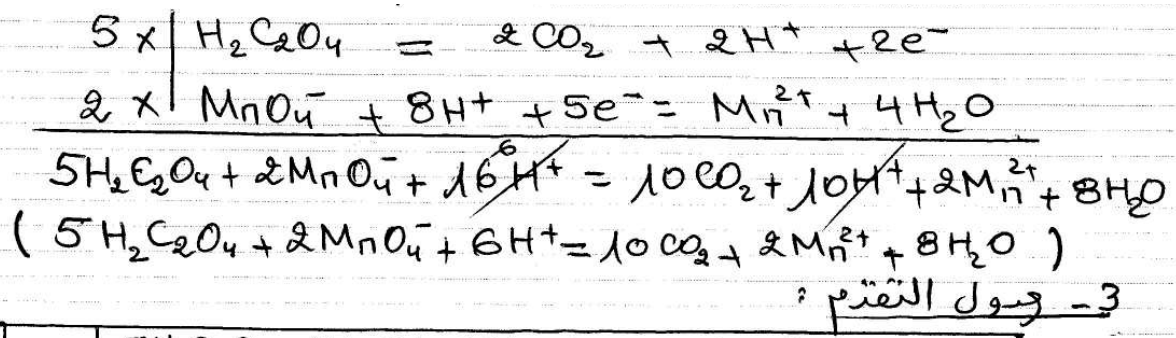 5 × | H₂C₂O₄ = 2CO₂ + 2H⁺ + 2e⁻
2 × | MnO₄⁻ + 8H⁺ + 5e⁻ = Mn²⁺ + 4H₂O
5H₂C₂O₄ + 2MnO₄⁻ + 16H⁺ 6 = 10CO₂ + 10H⁺ + 2Mn²⁺ + 8H₂O
( 5H₂C₂O₄ + 2MnO₄⁻ + 6H⁺ = 10CO₂ + 2Mn²⁺ + 8H₂O )
3 - جدول التقدم :